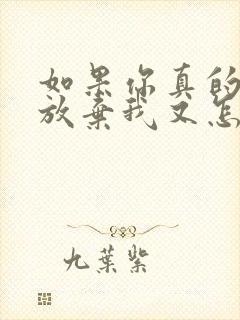 如果你真的
放棄我又怎
九葉紫